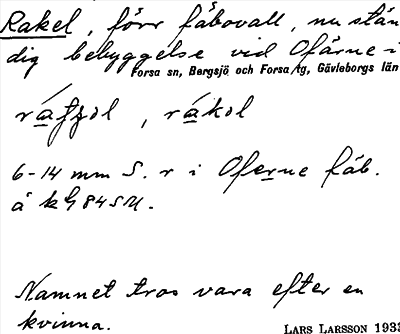 Rakel, förr fäbovall, nu stän
dig bebyggelse vid Ofärne i
Forsa sn, Bergsjö och Forsa tg, Gävleborgs län
, rákol
6-14 mm S. r i Oferne fäb.
å kg 84 SU.
Namnet tros vara efter en
kvinna.
LARS LARSSON 1933